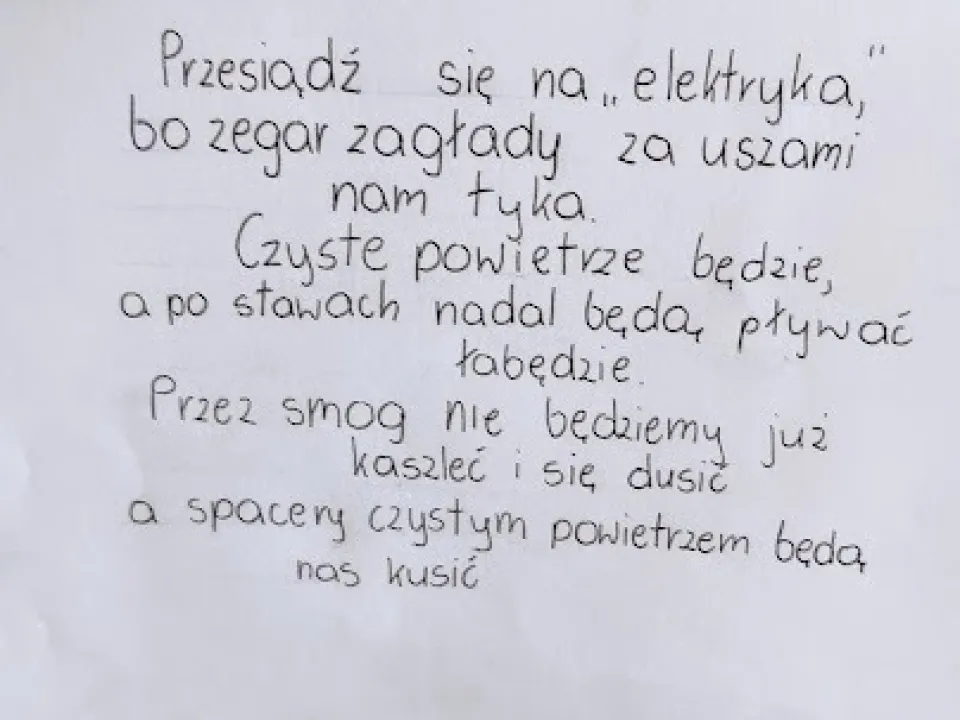 Przesiądź się na „elektryka,”
bo zegar zagłady za uszami
nam tyka.
Czyste powietrze będzie,
a po stawach nadal będą pływać
łabędzie.
Przez smog nie będziemy już
kaszleć i się dusić
a spacery czystym powietrzem będą
nas kusić